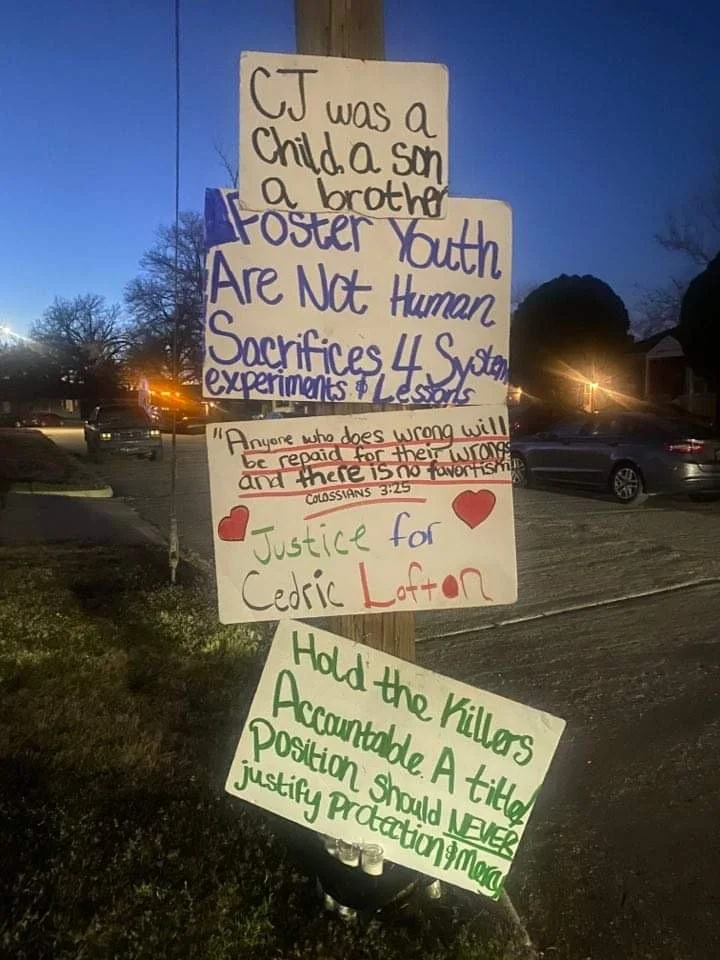 CJ was a
Child, a son
a brother
Foster Youth
Are Not Human
Sacrifices 4 System
experiments & Lessons
"Anyone who does wrong will
be repaid for their wrongs
and there is no favoritism
COLOSSIANS 3:25
Justice for
Cedric Lofton
Hold the Killers
Accountable. A title/
Position should NEVER
justify protection & mercy